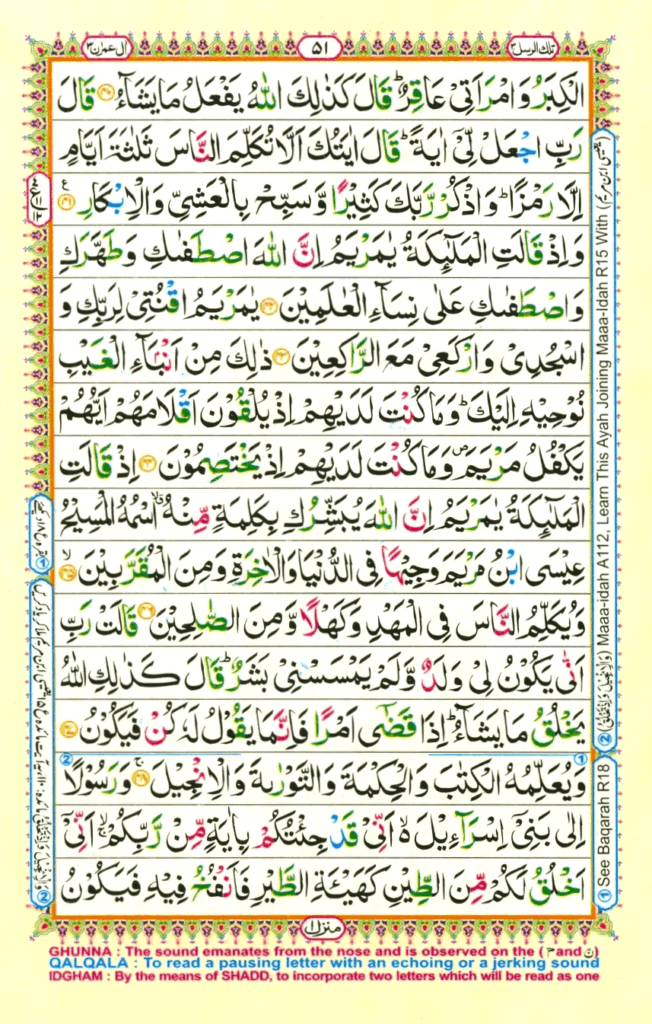 تلك الرسل ٣
٥١
اٰل عمرٰن ٣
الْكِبَرُ وَامْرَاَتِیْ عَاقِرٌ ؕ قَالَ كَذٰلِكَ اللّٰهُ یَفْعَلُ مَا یَشَآءُ ۝۴۰ قَالَ
رَبِّ اجْعَلْ لِّیْۤ اٰیَةً ؕ قَالَ اٰیَتُكَ اَلَّا تُكَلِّمَ النَّاسَ ثَلٰثَةَ اَیَّامٍ
اِلَّا رَمْزًا ؕ وَاذْكُرْ رَّبَّكَ كَثِیْرًا وَّسَبِّحْ بِالْعَشِیِّ وَالْاِبْكَارِ ۝۴۱
وَاِذْ قَالَتِ الْمَلٰٓىِٕكَةُ یٰمَرْیَمُ اِنَّ اللّٰهَ اصْطَفٰىكِ وَطَهَّرَكِ
وَاصْطَفٰىكِ عَلٰی نِسَآءِ الْعٰلَمِیْنَ ۝۴۲ یٰمَرْیَمُ اقْنُتِیْ لِرَبِّكِ وَ
اسْجُدِیْ وَارْكَعِیْ مَعَ الرّٰكِعِیْنَ ۝۴۳ ذٰلِكَ مِنْ اَنْۢبَآءِ الْغَیْبِ
نُوْحِیْهِ اِلَیْكَ ؕ وَمَا كُنْتَ لَدَیْهِمْ اِذْ یُلْقُوْنَ اَقْلَامَهُمْ اَیُّهُمْ
یَكْفُلُ مَرْیَمَ ۪ وَمَا كُنْتَ لَدَیْهِمْ اِذْ یَخْتَصِمُوْنَ ۝۴۴ اِذْ قَالَتِ
الْمَلٰٓىِٕكَةُ یٰمَرْیَمُ اِنَّ اللّٰهَ یُبَشِّرُكِ بِكَلِمَةٍ مِّنْهُ ۖۗ اسْمُهُ الْمَسِیْحُ
عِیْسَی ابْنُ مَرْیَمَ وَجِیْهًا فِی الدُّنْیَا وَالْاٰخِرَةِ وَمِنَ الْمُقَرَّبِیْنَ ۝۴۵ۙ
وَیُكَلِّمُ النَّاسَ فِی الْمَهْدِ وَكَهْلًا وَّمِنَ الصّٰلِحِیْنَ ۝۴۶ قَالَتْ رَبِّ
اَنّٰی یَكُوْنُ لِیْ وَلَدٌ وَّلَمْ یَمْسَسْنِیْ بَشَرٌ ؕ قَالَ كَذٰلِكِ اللّٰهُ
یَخْلُقُ مَا یَشَآءُ ؕ اِذَا قَضٰۤی اَمْرًا فَاِنَّمَا یَقُوْلُ لَهٗ كُنْ فَیَكُوْنُ ۝۴۷
وَیُعَلِّمُهُ الْكِتٰبَ وَالْحِكْمَةَ وَالتَّوْرٰىةَ وَالْاِنْجِیْلَ ۝۴۸ۚ وَرَسُوْلًا
اِلٰی بَنِیْۤ اِسْرَآءِیْلَ ۙ۬ اَنِّیْ قَدْ جِئْتُكُمْ بِاٰیَةٍ مِّنْ رَّبِّكُمْ ۙۚ اَنِّیْۤ
اَخْلُقُ لَكُمْ مِّنَ الطِّیْنِ كَهَیْـَٔةِ الطَّیْرِ فَاَنْفُخُ فِیْهِ فَیَكُوْنُ
منزل ١
① See Baqarah R18
② Maaa-idah A112, Learn This Ayah Joining Maaa-Idah R15 With
GHUNNA : The sound emanates from the nose and is observed on the ( م and ن )
QALQALA : To read a pausing letter with an echoing or a jerking sound
IDGHAM : By the means of SHADD, to incorporate two letters which will be read as one